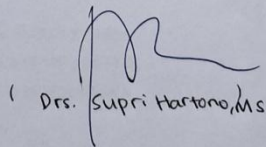 ( Drs. Supri Hartono, Ms